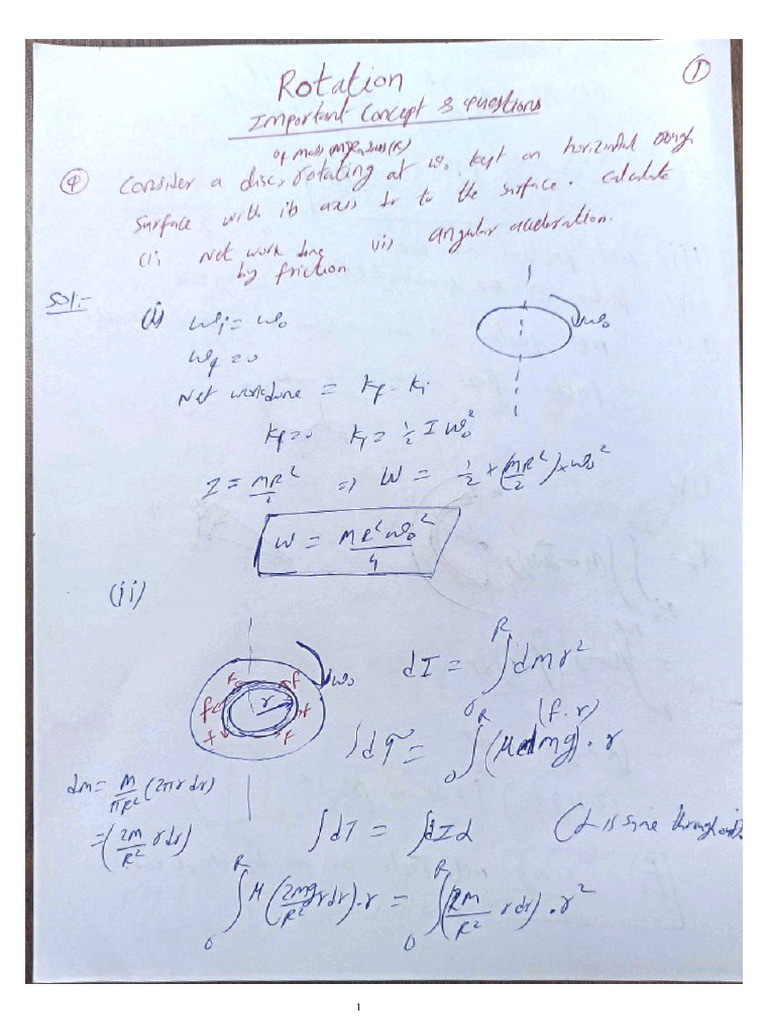 ①
Rotation
Important Concept & questions
of mass (M) Radius (R)
Q Consider a disc, rotating at ω₀ kept on horizontal rough
surface with its axis ⊥r to the surface. Calculate
(i) Net work done by friction (ii) angular acceleration.
Sol:-
(i) ω_i = ω₀
ω₀
ω_f = 0
Net workdone = K_f - K_i
K_f = 0 K_i = 1/2 I ω₀²
I = MR²/2 ⇒ W = 1/2 × (MR²/2) × ω₀²
W = MR²ω₀²/4
(ii)
ω₀
r
f f f f f f
dI = ∫₀ᴿ dm r²
(f.r)
∫dτ = ∫₀ᴿ (μ dmg) . r
dm = M/πR² (2πr dr)
= (2M/R² r dr)
∫dτ = ∫dI α (α is same throughout)
∫₀ᴿ μ (2mg/R² r dr) . r = ∫₀ᴿ (2M/R² r dr) . r²
1